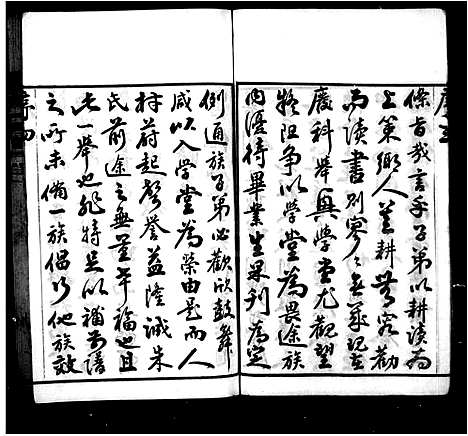 條旨哉言乎子弟以耕讀為
上策鄉人若耕無容勸
而讀書則寥寥無幾迨
廢科舉興學堂尤觀望
猶阻爭以學堂為畏途族
內優待畢業生未刊為定
例通族子弟必歡欣鼓舞
咸以入學堂為榮由是而人
材蔚起聲譽益隆誠朱
氏前途之無量幸福也且
此一舉也非特足以補前譜
之所未備一族倡以他族效